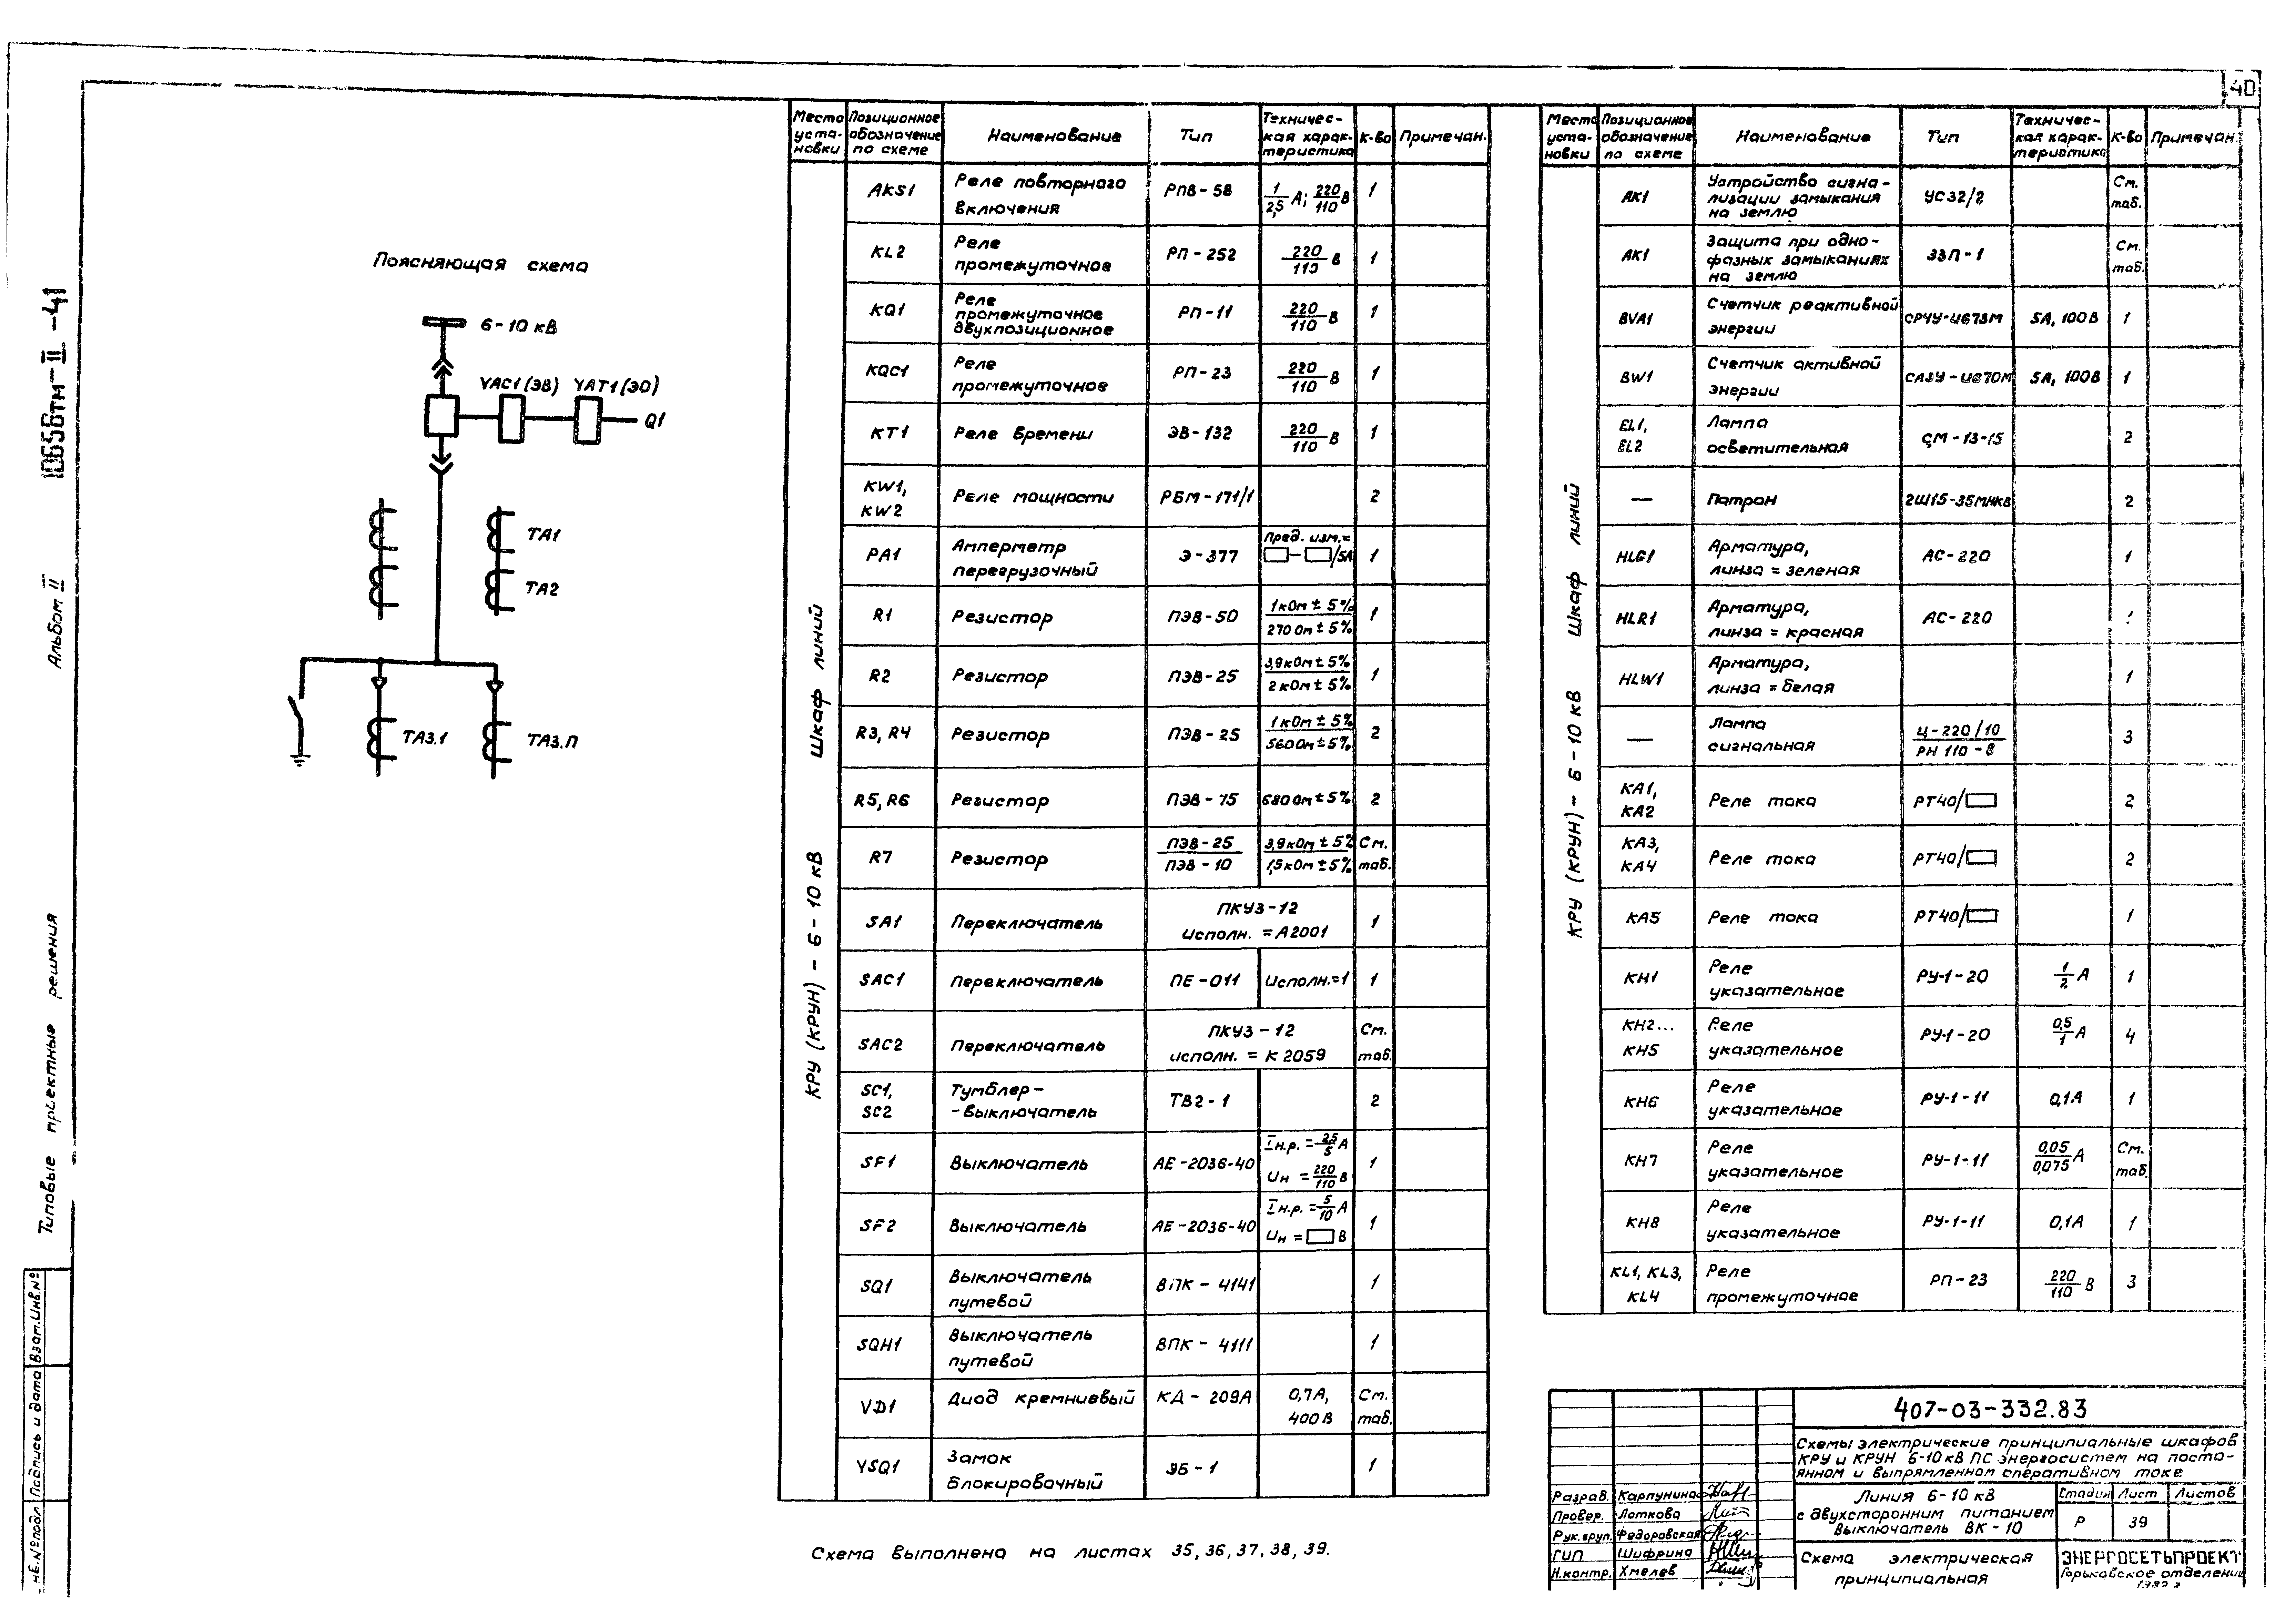 40
10656тм-II-41
Альбом II
Типовые проектные решения
Взам.Инв.№
Подпись и дата
Поясняющая схема
6-10 кВ
YAC1 (ЭВ) YAT1 (ЭО)
Q1
TA1
TA2
TA3.1
TA3.П
Место установки
Позиционное обозначение по схеме
Наименование
Тип
Техническая характеристика
К-во
Примечан.
КРУ (КРУН) - 6-10 кВ Шкаф линий
AKS1 Реле повторного включения РПВ-58 1/2,5 А; 220/110 В 1
KL2 Реле промежуточное РП-252 220/110 В 1
KQ1 Реле промежуточное двухпозиционное РП-11 220/110 В 1
KQC1 Реле промежуточное РП-23 220/110 В 1
KT1 Реле времени ЭВ-132 220/110 В 1
KW1, KW2 Реле мощности РБМ-171/1 2
PA1 Амперметр перегрузочный Э-377 Пред. изм.= - /5А 1
R1 Резистор ПЭВ-50 1кОм±5% / 270 Ом±5% 1
R2 Резистор ПЭВ-25 3,9кОм±5% / 2кОм±5% 1
R3, R4 Резистор ПЭВ-25 1кОм±5% / 560Ом±5% 2
R5, R6 Резистор ПЭВ-75 680Ом±5% 2
R7 Резистор ПЭВ-25 / ПЭВ-10 3,9кОм±5% / 1,5кОм±5% См. таб.
SA1 Переключатель ПКУ3-12 Исполн. = А2001 1
SAC1 Переключатель ПЕ-011 Исполн.=1 1
SAC2 Переключатель ПКУ3-12 исполн. = К2059 См. таб.
SC1, SC2 Тумблер-выключатель ТВ2-1 2
SF1 Выключатель АЕ-2036-40 Iн.р. = 2,5/5 А Uн = 220/110 В 1
SF2 Выключатель АЕ-2036-40 Iн.р. = 5/10 А Uн = В 1
SQ1 Выключатель путевой ВПК-4141 1
SQH1 Выключатель путевой ВПК-4111 1
VD1 Диод кремниевый КД-209А 0,7А, 400В См. таб.
YSQ1 Замок блокировочный ЭБ-1 1
Схема выполнена на листах 35, 36, 37, 38, 39.
Место установки
Позиционное обозначение по схеме
Наименование
Тип
Техническая характеристика
К-во
Примечан.
КРУ (КРУН) - 6-10 кВ Шкаф линий
AK1 Устройство сигнализации замыкания на землю УС32/2 См. таб.
AK1 Защита при однофазных замыканиях на землю ЗЗП-1 См. таб.
BVA1 Счетчик реактивной энергии СРЧУ-И673М 5А, 100В 1
BW1 Счетчик активной энергии САЗУ-И670М 5А, 100В 1
EL1, EL2 Лампа осветительная СМ-13-15 2
— Патрон 2Ш15-35МНКВ 2
HLG1 Арматура, линза = зеленая АС-220 1
HLR1 Арматура, линза = красная АС-220
HLW1 Арматура, линза = белая 1
— Лампа сигнальная Ц-220/10 / РН 110-8 3
KA1, KA2 Реле тока РТ40/ 2
KA3, KA4 Реле тока РТ40/ 2
KA5 Реле тока РТ40/ 1
KH1 Реле указательное РУ-1-20 1/2 А 1
KH2... KH5 Реле указательное РУ-1-20 0,5/1 А 4
KH6 Реле указательное РУ-1-11 0,1А 1
KH7 Реле указательное РУ-1-11 0,05/0,075 А См. таб.
KH8 Реле указательное РУ-1-11 0,1А 1
KL1, KL3, KL4 Реле промежуточное РП-23 220/110 В 3
407-03-332.83
Схемы электрические принципиальные шкафов
КРУ и КРУН 6-10кВ ПС энергосистем на посто-
янном и выпрямленном оперативном токе
Разраб. Карпунина
Провер. Лоткова
Рук.груп. Федоровская
ГИП Шифрина
Н.контр. Хмелев
Линия 6-10 кВ
с двухсторонним питанием
выключатель ВК-10
Стадия Лист Листов
Р 39
Схема электрическая
принципиальная
ЭНЕРГОСЕТЬПРОЕКТ
Горьковское отделение